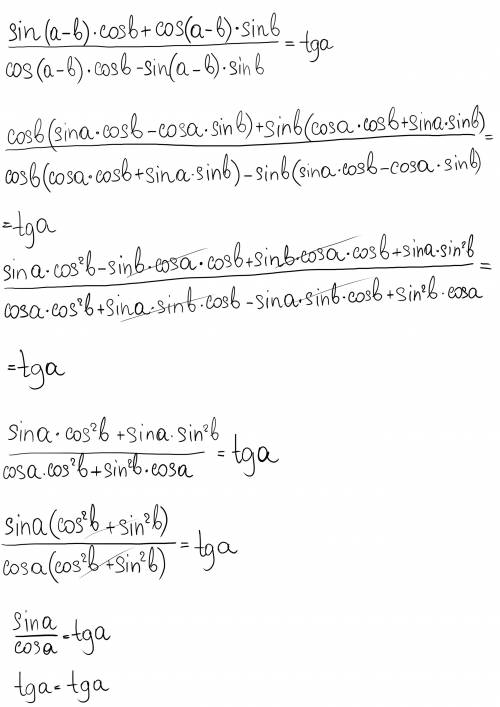 sin(a-b)·cosb+cos(a-b)·sinb
= tga
cos(a-b)·cosb-sin(a-b)·sinb
cosb(sina·cosb-cosa·sinb)+sinb(cosa·cosb+sina·sinb)
=
cosb(cosa·cosb+sina·sinb)-sinb(sina·cosb-cosa·sinb)
=tga
sina·cos²b-sinb·cosa·cosb+sinb·cosa·cosb+sina·sin²b
=
cosa·cos²b+sina·sinb·cosb-sina·sinb·cosb+sin²b·cosa
=tga
sina·cos²b+sina·sin²b
= tga
cosa·cos²b+sin²b·cosa
sina(cos²b+sin²b)
= tga
cosa(cos²b+sin²b)
sina
=tga
cosa
tga=tga